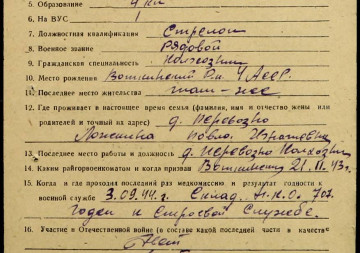 5. Образование 4 кл
6. На ВУС 1
7. Должностная квалификация Стрелок
8. Военное звание Рядовой
9. Гражданская специальность Колхозник
10. Место рождения Воткинский р-н УАССР.
11. Последнее место жительства там-же
12. Где проживает в настоящее время семья (фамилия, имя и отчество жены или
родителей и точный на адрес) д. Перевозно
13. Последнее место работы и должность д. Перевозно Колхозн
14. Каким райгорвоенкоматом и когда призван Воткинским 21. II. 43 г.
15. Когда и где проходил последний раз медкомиссию и результат годности к
военной службе 3.09.44 г.
Годен к Строевой Службе.
16. Участие в Отечественной войне (в составе какой последней части в качестве
Нет